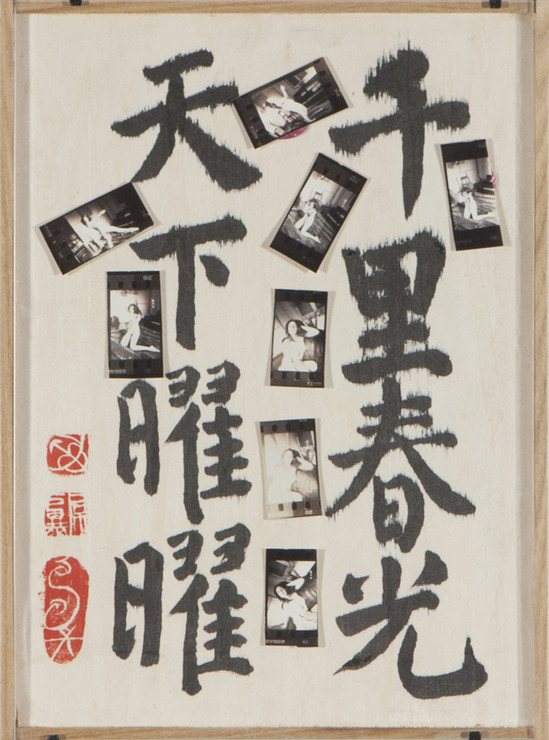 千里春光
天下曜曜